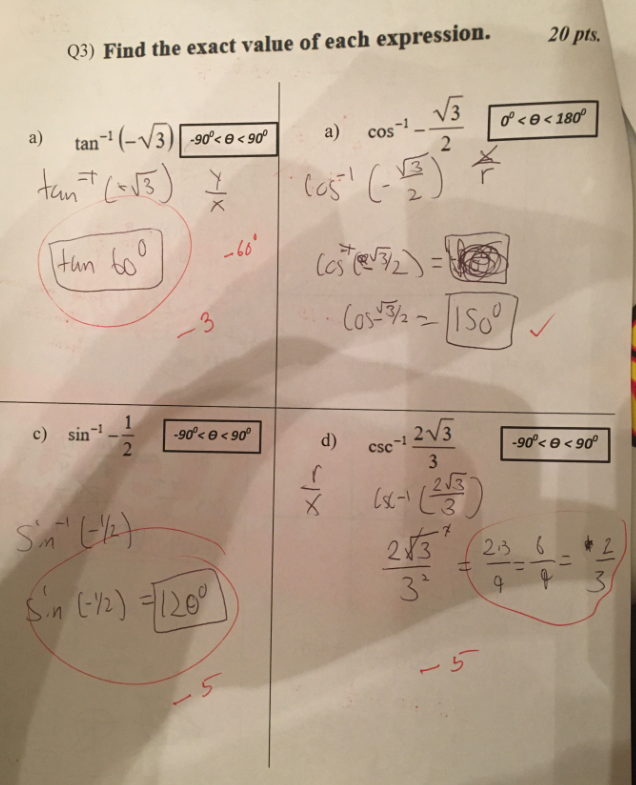 Q3) Find the exact value of each expression. 20 pts.
a) tan⁻¹ (-√3) -90⁰< Θ < 90⁰
tan⁻¹ (-√3) Y/X
tan 60⁰
-60⁰
-3
a) cos⁻¹ - √3/2 0⁰ < Θ < 180⁰
Cos⁻¹ (-√3/2) X/r
Cos (√3/2) =
Cos -√3/2 = 150⁰ ✓
c) sin⁻¹ - 1/2 -90⁰< Θ < 90⁰
Sin⁻¹ (-1/2)
Sin (-1/2) = 120⁰
-5
d) csc⁻¹ 2√3/3 -90⁰< Θ < 90⁰
r/X Csc⁻¹ (2√3/3)
2√3/3² = 2·3/9 = 6/9 = 2/3
-5